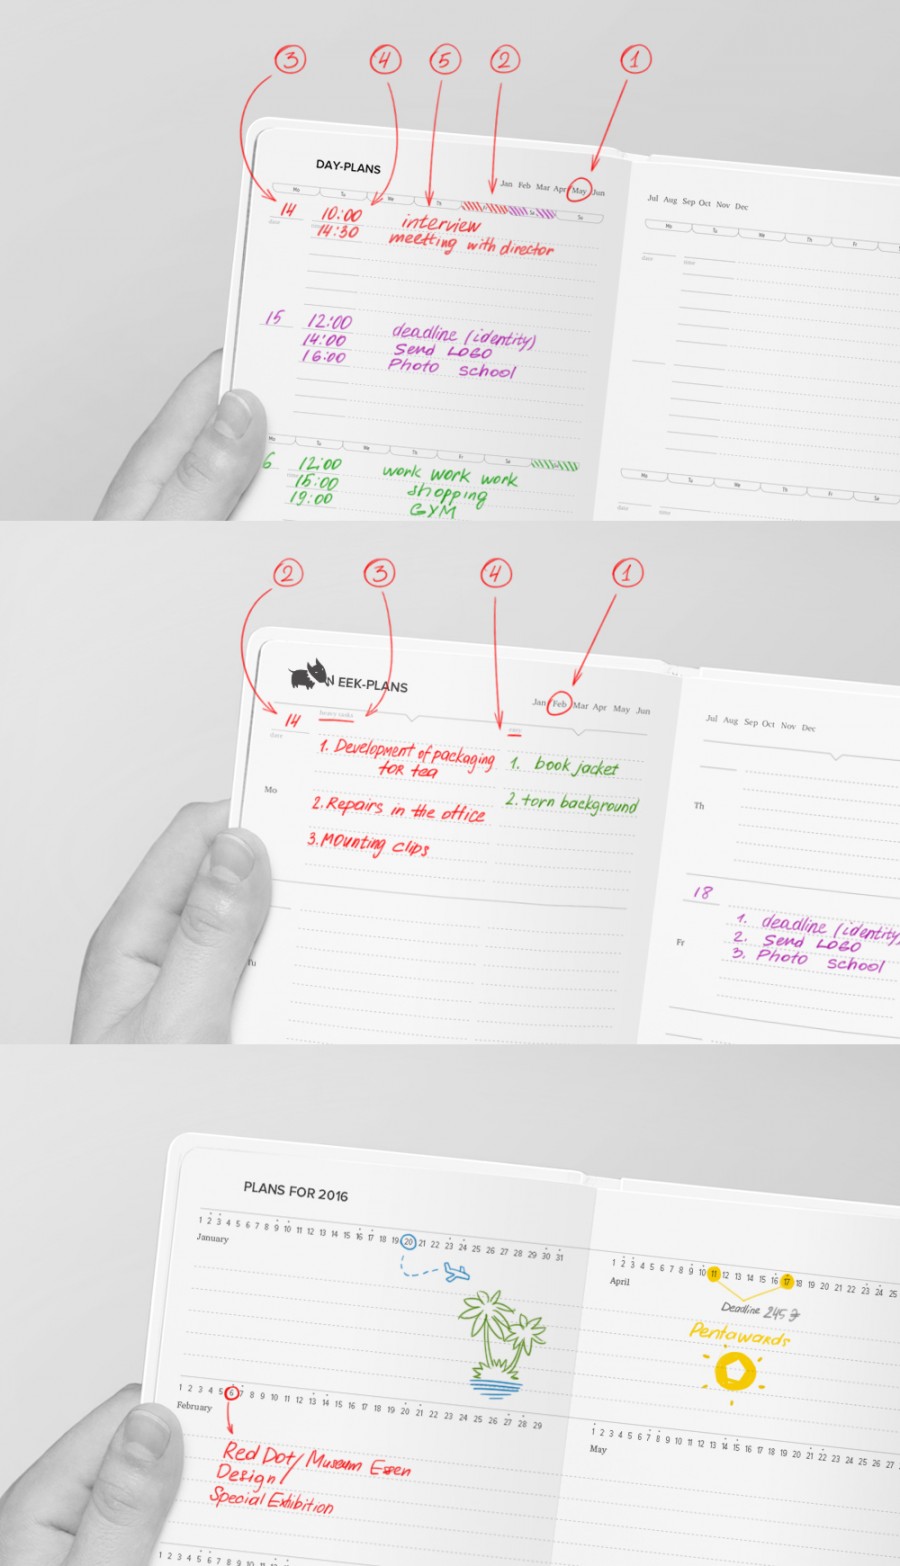 3 4 5 2 1
DAY-PLANS
Jan Feb Mar Apr May Jun
Jul Aug Sep Oct Nov Dec
Mo Tu We Th Sa Su
Mo Tu We Th Fr
14 10:00 interview
date 14:30 meetting with director
date
15 12:00 deadline (identity)
14:00 Send LOGO
16:00 Photo school
Mo Tu We Th Fr Sa
Mo Tu We Th Fr Sa
6 12:00 work work work
15:00 shopping
19:00 GYM
date
2 3 4 1
WEEK-PLANS
Jan Feb Mar Apr May Jun
Jul Aug Sep Oct Nov Dec
14
date
1. Development of packaging
for tea
1. book jacket
Mo
2. Repairs in the office
2. torn background
3. Mounting clips
Th
18
1. deadline (identity)
2. Send LOGO
3. Photo school
Fr
Tu
PLANS FOR 2016
1 2 3 4 5 6 7 8 9 10 11 12 13 14 15 16 17 18 19 20 21 22 23 24 25 26 27 28 29 30 31
January
1 2 3 4 5 6 7 8 9 10 11 12 13 14 15 16 17 18 19 20 21 22 23 24 25
April
Deadline 245
Pentawards
1 2 3 4 5 6 7 8 9 10 11 12 13 14 15 16 17 18 19 20 21 22 23 24 25 26 27 28 29
February
1 2 3 4 5 6 7 8 9 10 11 12 13 14 15 16 17 18 19 20 21 22 23 24 25 26 27
May
Red Dot/Museum Essen
Design/
Special Exhibition
1 2 3 4 5 6 7 8 9 10 11 12 13 14 15 16 17 18 19 20 21 22